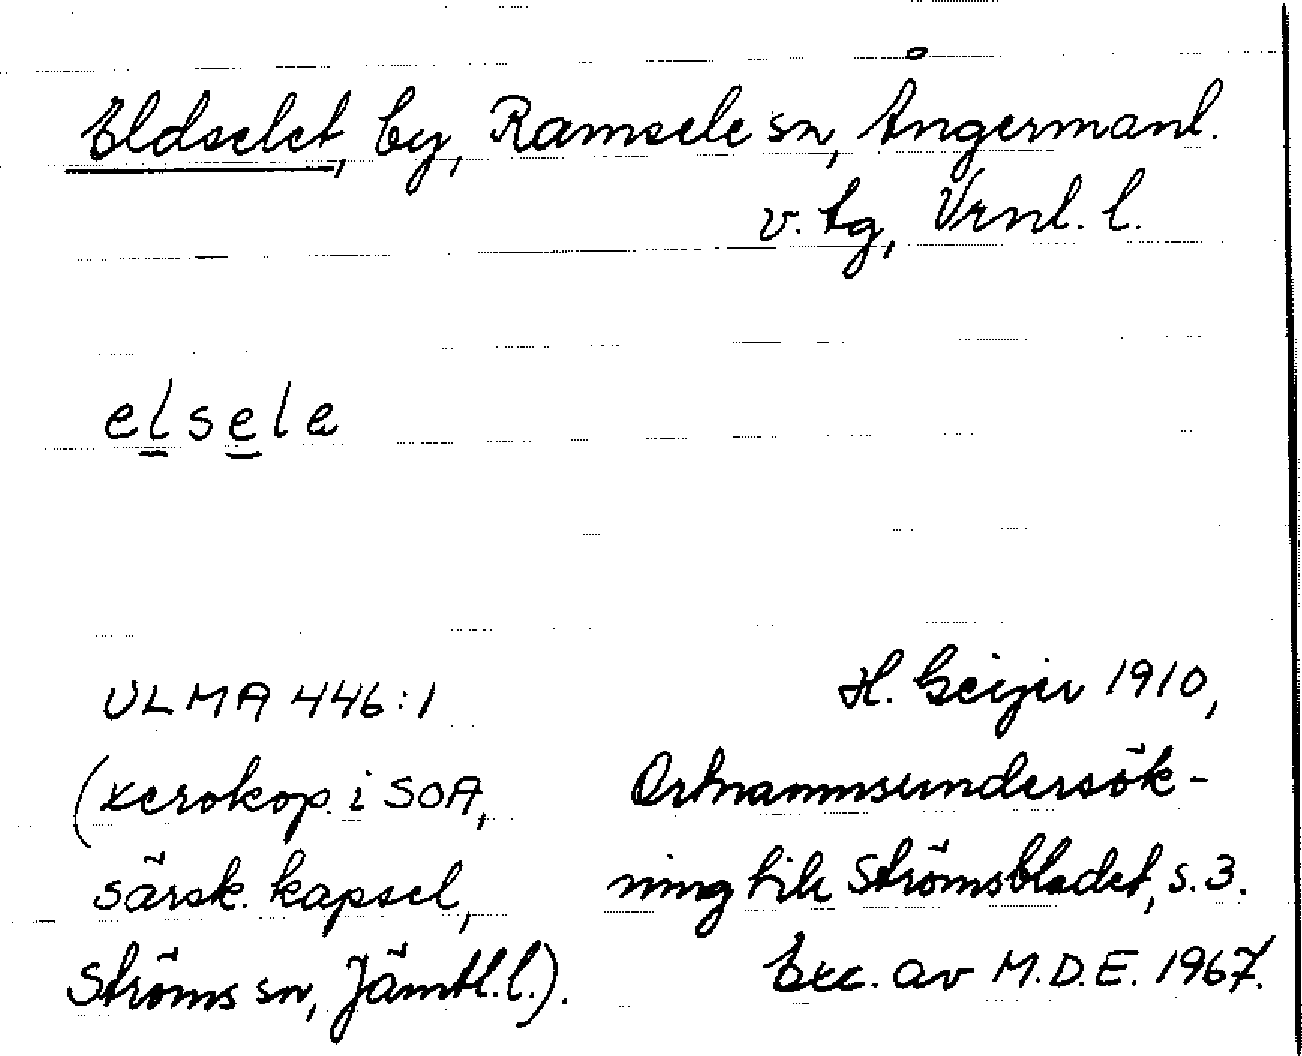 Eldselet, by, Ramsele sn, Ångermanl.
v. tg, Vrnl. l.
elsele
ULMA 446:1
(xerokop. i SOA,
särsk. kapsel,
Ströms sn, Jämtl.l.).
H. Geijer 1910,
Ortnamnsundersök-
ning till Strömsbladet, s. 3.
Exc. av M.D.E. 1967.